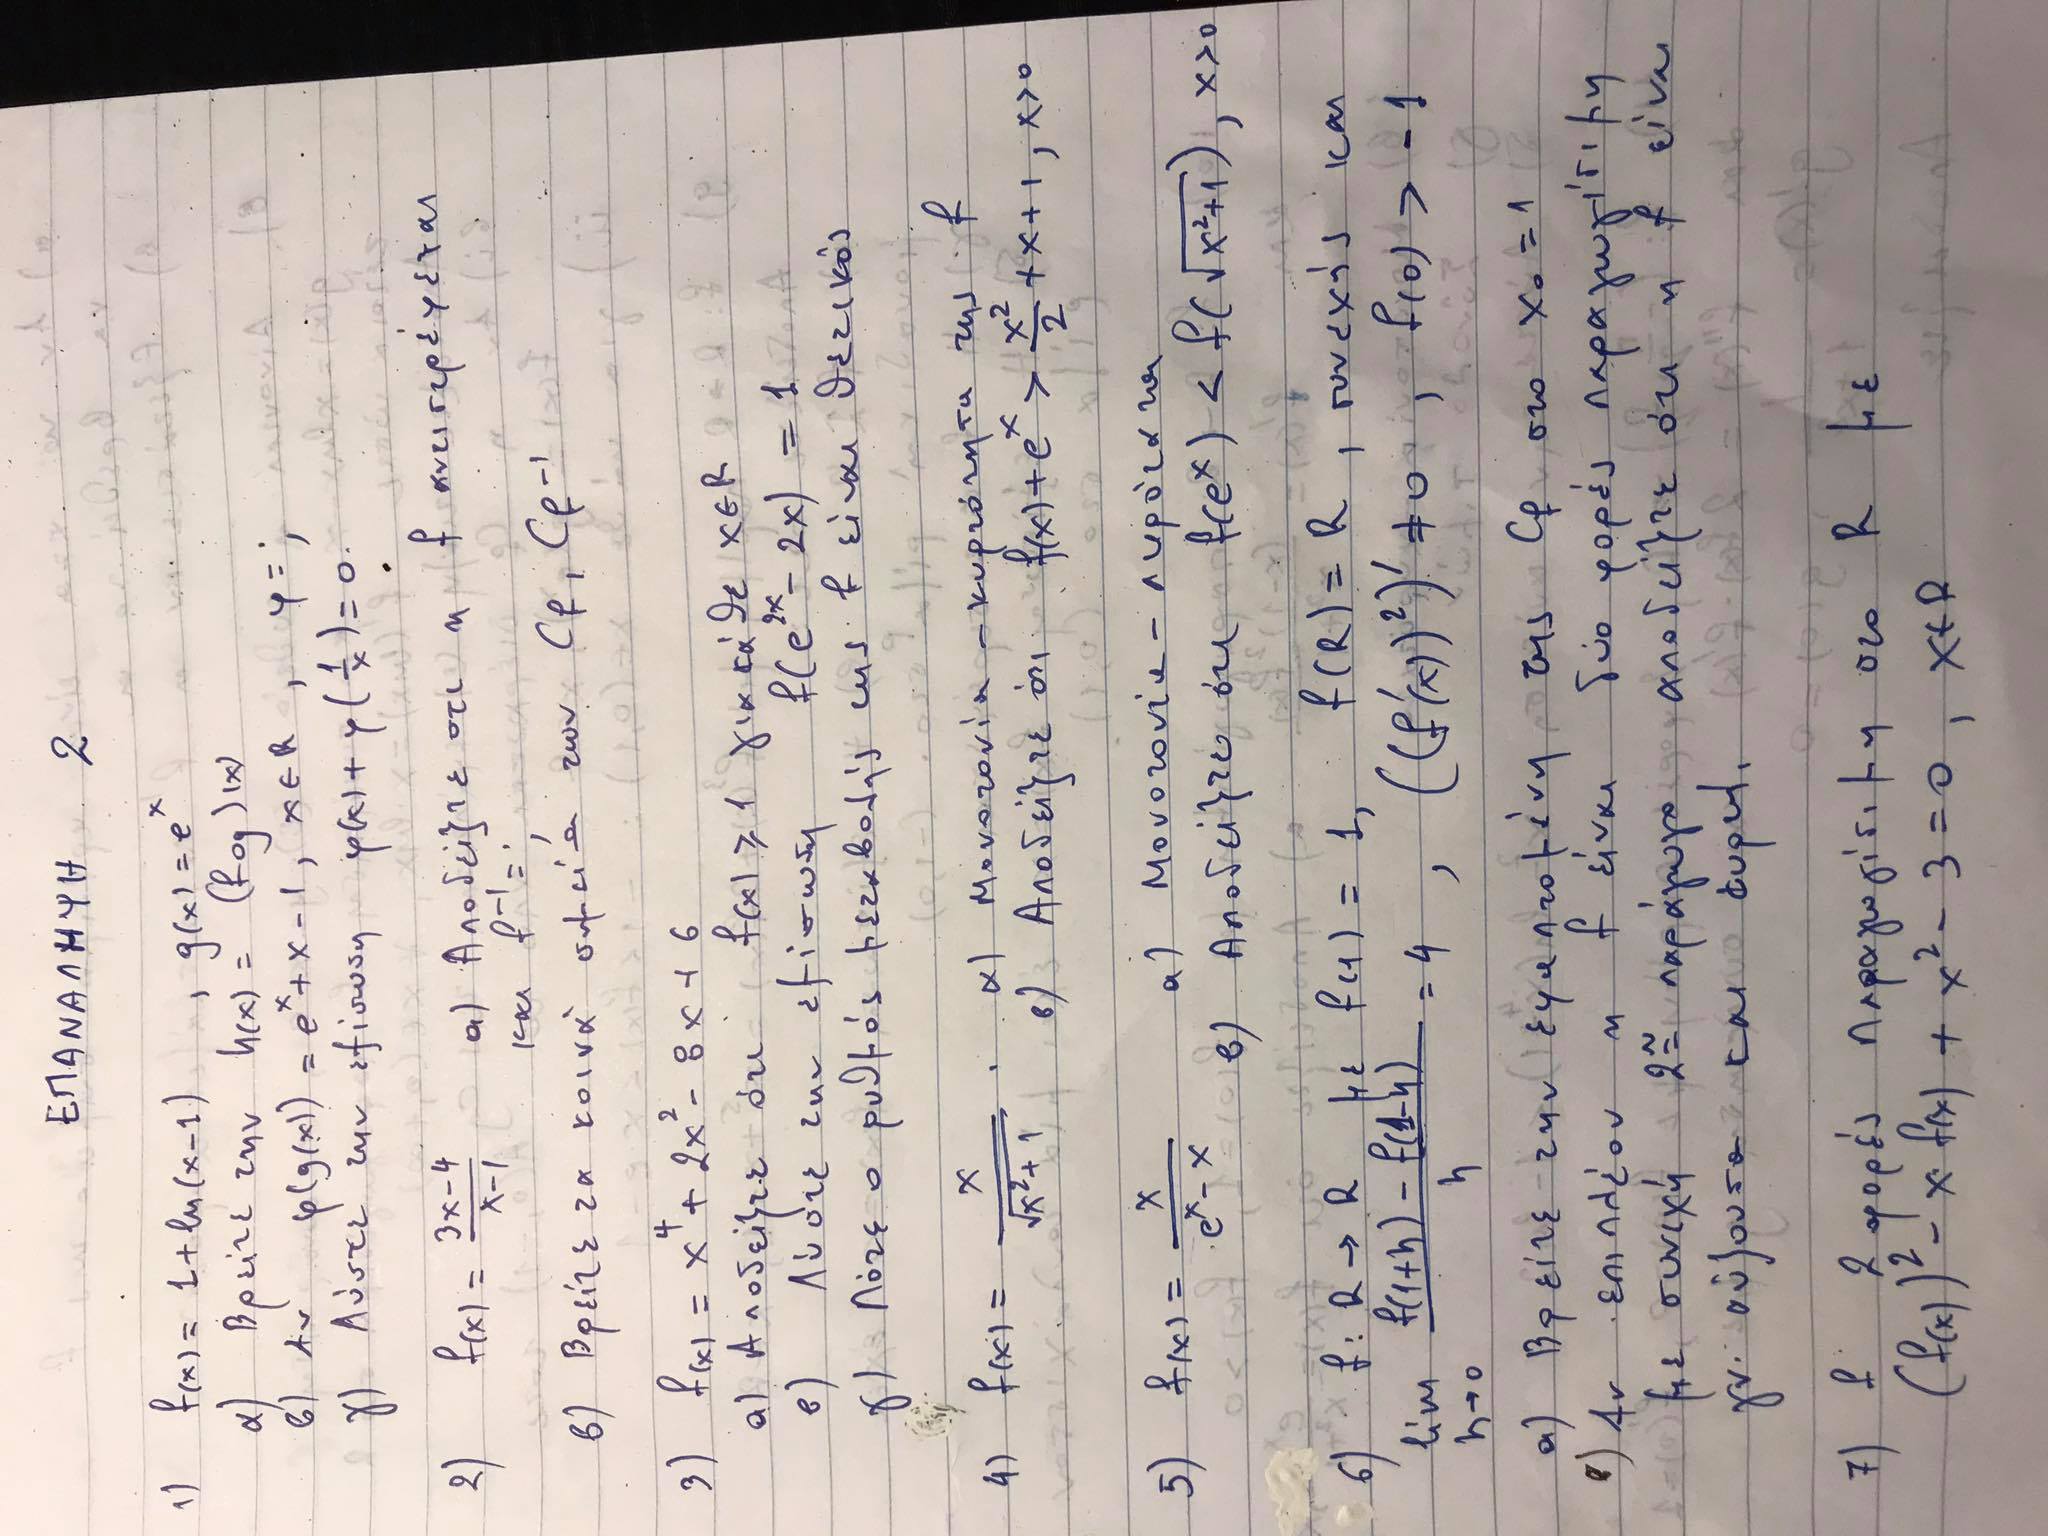 ΕΠΑΝΑΛΗΨΗ 2
1) f(x) = 1 + ln(x-1) , g(x) = e^x
α) Βρείτε την h(x) = (fog)(x)
β) Αν φ(g(x)) = e^x + x - 1, x∈R , φ = ;
γ) Λύσετε την εξίσωση φ(x) + φ(1/x) = 0.
2) f(x) = (3x-4)/(x-1) α) Αποδείξτε οτι η f αντιστρέφεται
και f^-1 = ;
β) Βρείτε τα κοινά σημεία των Cf , Cf^-1
3) f(x) = x^4 + 2x^2 - 8x + 6
α) Αποδείξτε ότι f(x) ≥ 1 για κάθε x∈R
β) Λύστε την εξίσωση f(e^2x - 2x) = 1
γ) Πότε ο ρυθμός μεταβολής της f είναι θετικός
4) f(x) = x/√(x^2+1) . α) Μονοτονία - κυρτότητα της f
β) Αποδείξτε ότι f(x) + e^x > x^2/2 + x + 1, x>0
5) f(x) = x/(e^x - x) α) Μονοτονία - ακρότατα
β) Αποδείξτε ότι f(e^x) < f(√(x^2+1)) , x>0
6) f: R → R με f(1) = 1, f(R) = R , συνεχής και
lim h→0 (f(1+h) - f(1-h))/h = 4 , ((f'(x))^2)' ≠ 0 , f(0) > -1
α) Βρείτε την εφαπτομένη της Cf στο x₀ = 1
β) Αν επιπλέον η f είναι δύο φορές παραγωγίσιμη
με συνεχή 2η παράγωγο αποδείξτε ότι η f είναι
γν. αύξουσα και κυρτή.
7) f 2 φορές παραγωγίσιμη στο R με
(f(x))^2 - x f(x) + x^2 - 3 = 0 , x∈R